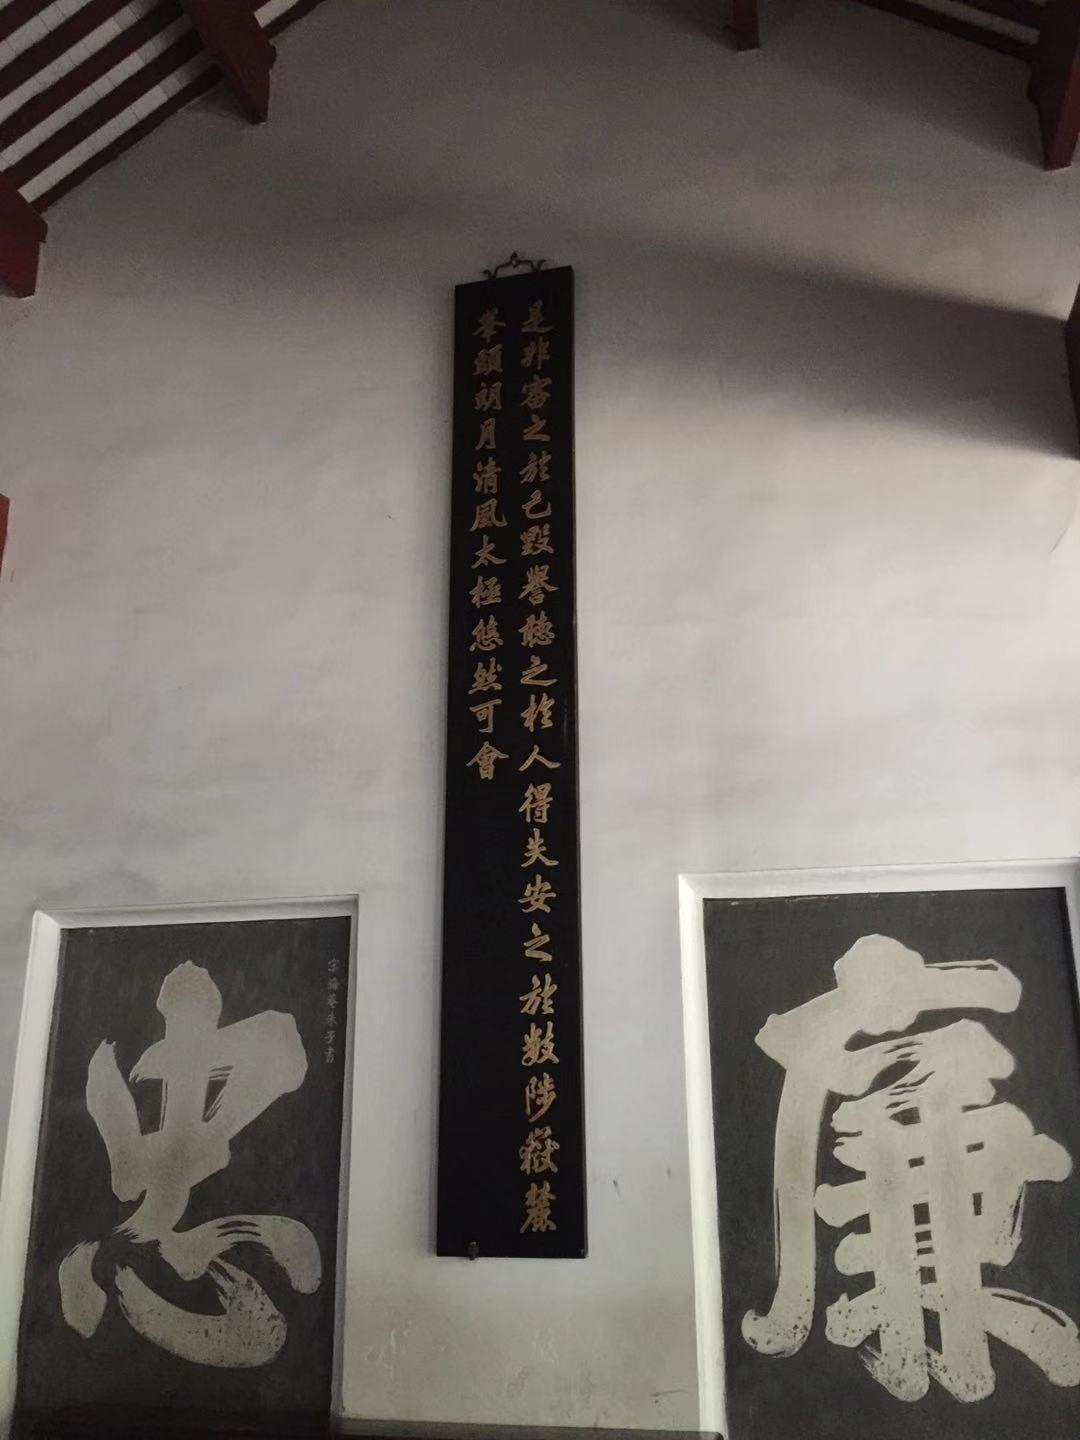 是非審之於己毀譽聽之於人得失安之於數陟嶽麓
峯頭朗月清風太極悠然可會
廉
忠
宋晦菴朱子書